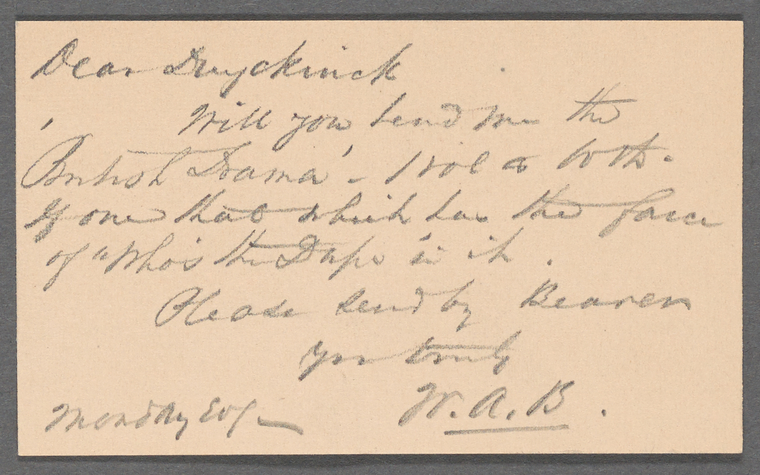 Dear Duyckinck
Will you send me the
'British Drama' - 1 vol or both -
If one that which has the farce
of "Who's the Dupe" in it.
Please send by Bearer
Yrs truly
W. A. B.
Monday Evg